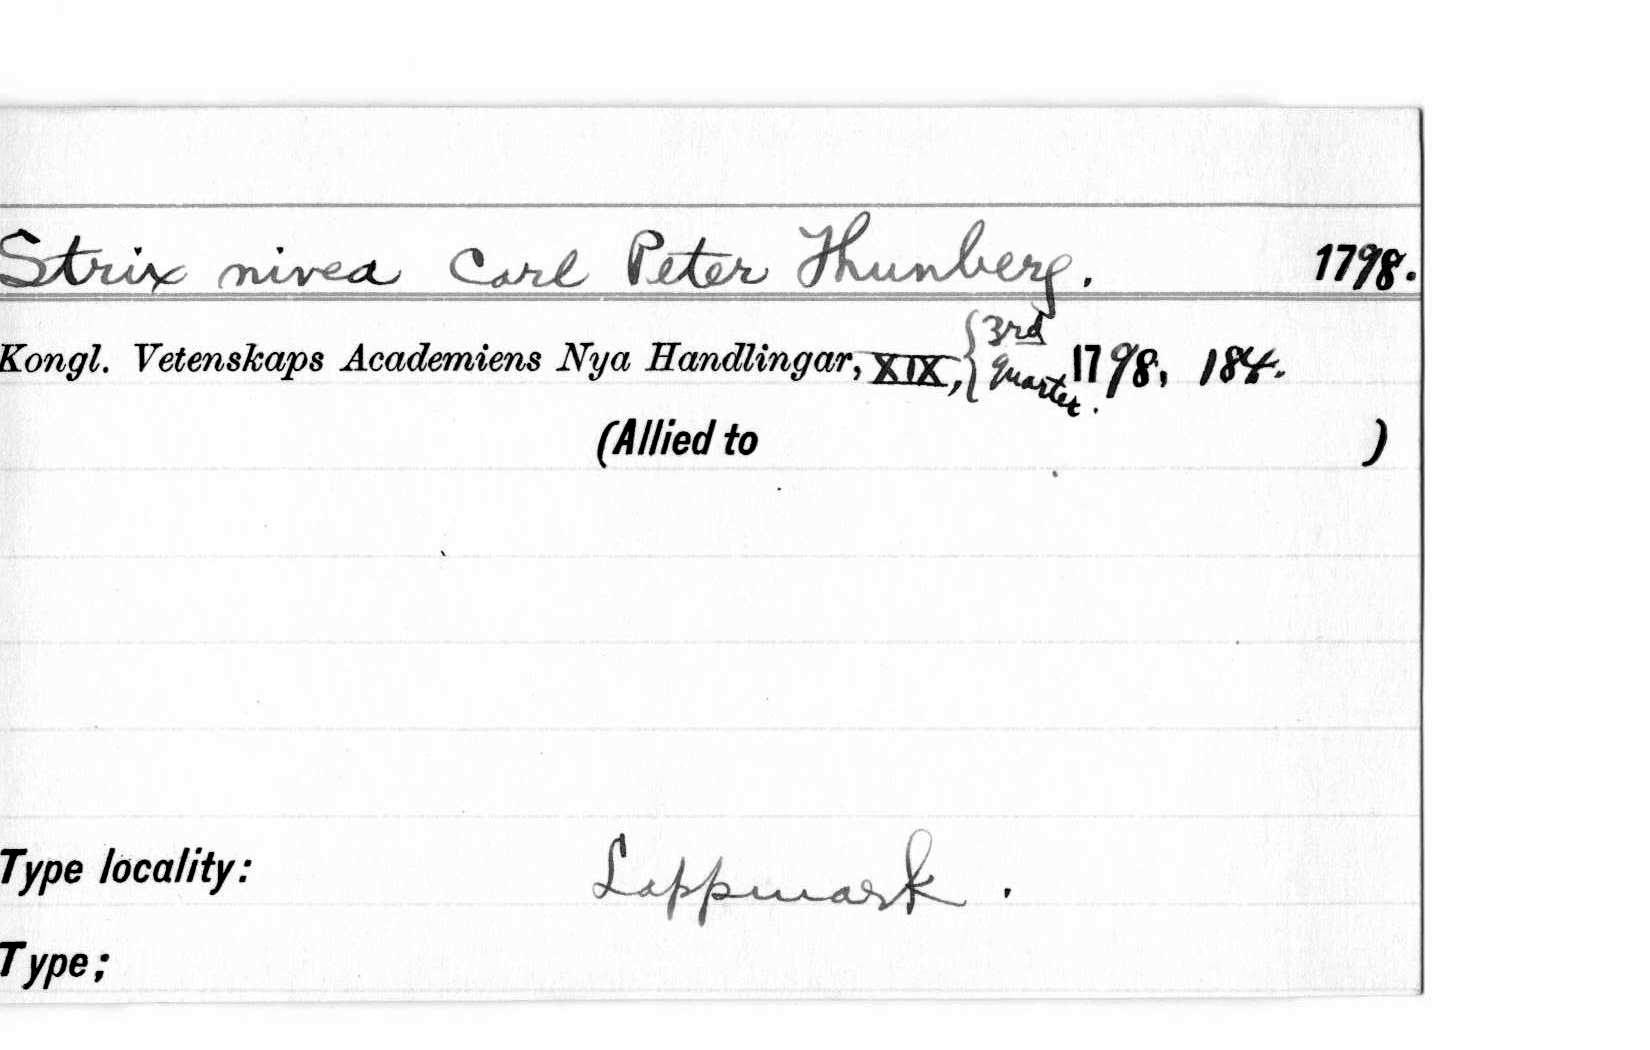 Strix nivea Carl Peter Thunberg. 1798.
Kongl. Vetenskaps Academiens Nya Handlingar, XIX, {3rd Quarter. 1798, 184.
(Allied to )
Type locality: Lappmark.
Type;